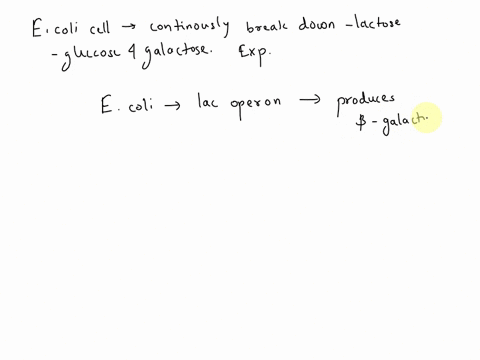 E. coli cell → continously break down - lactose
- glucose & galactose. Exp.
E. coli → lac operon → produces
β - galact